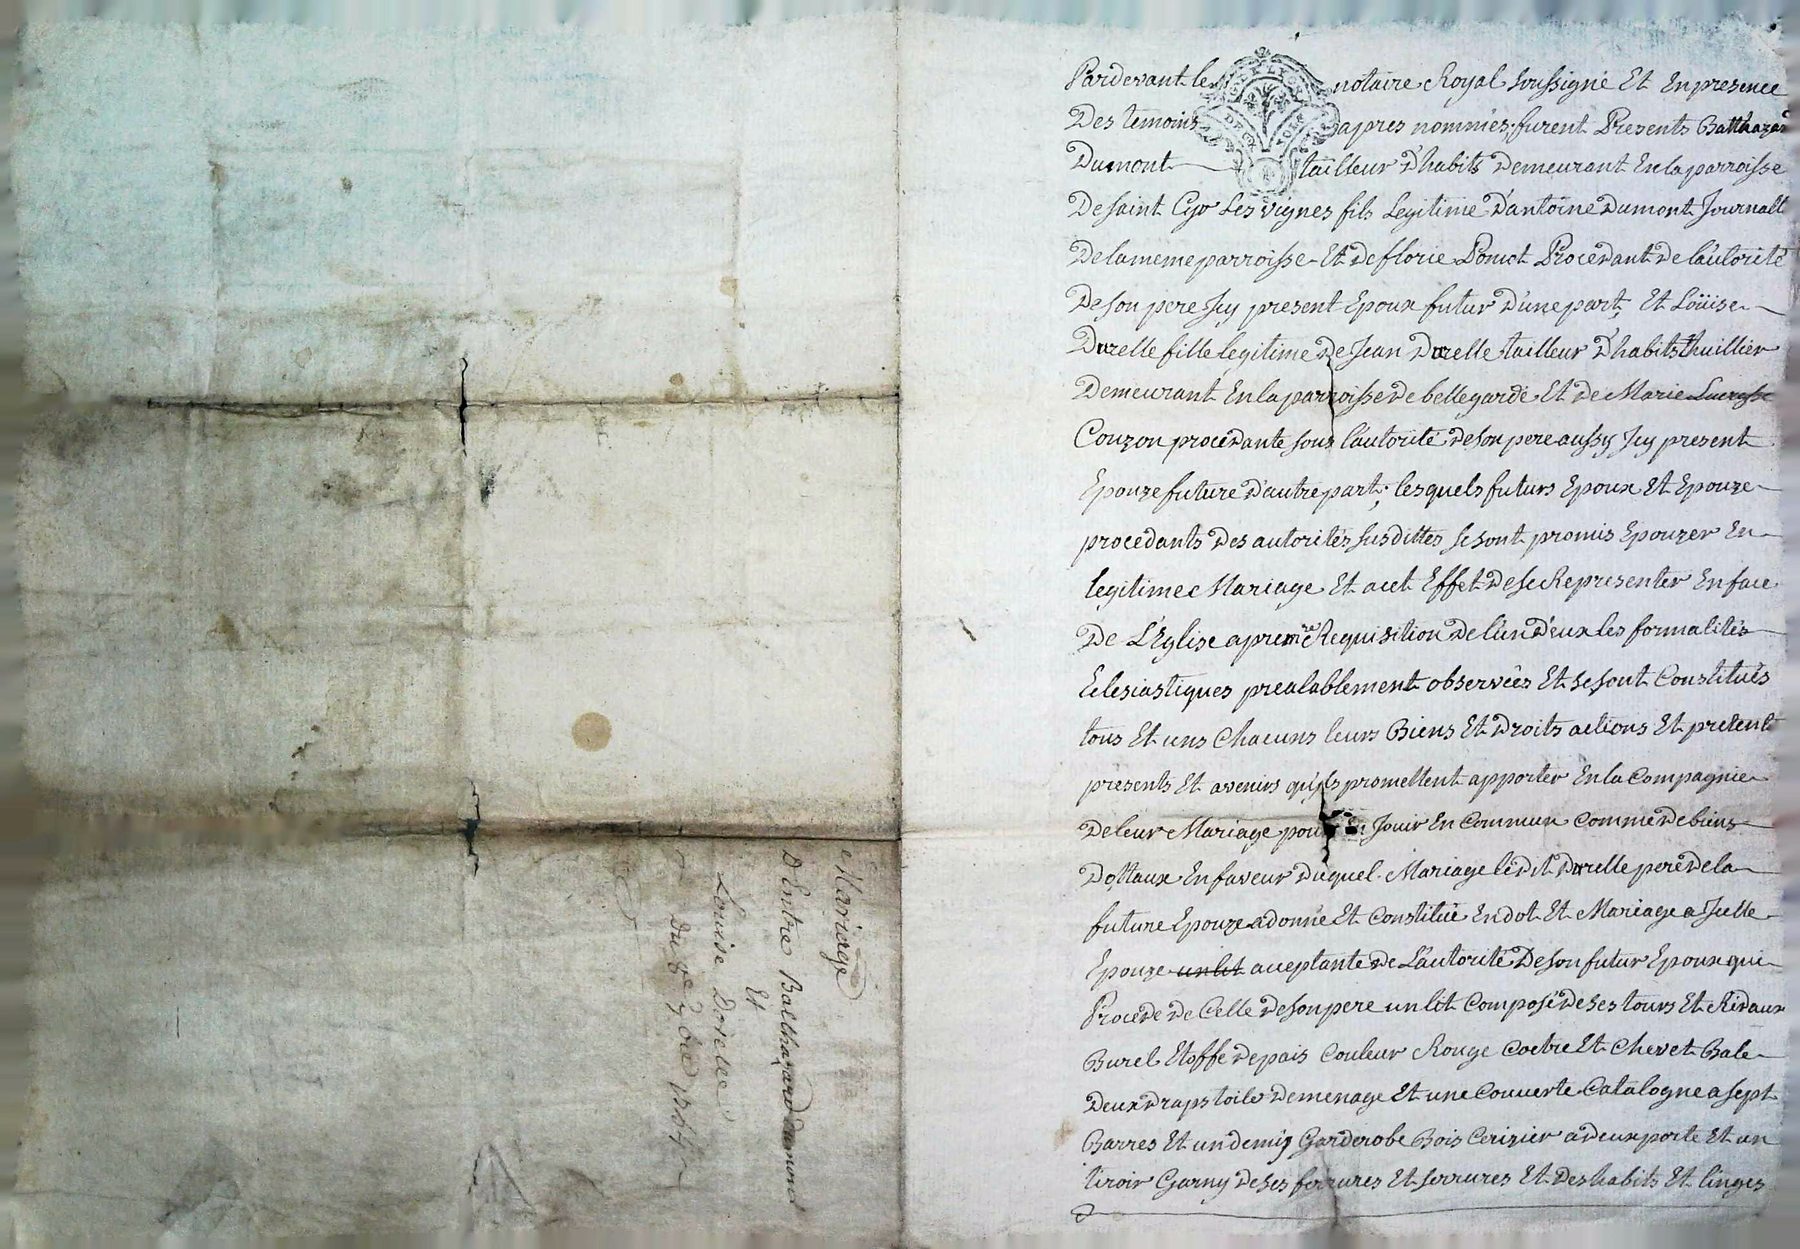 Mariage
D'Entre Balthazard Dumont
Et
Louise Dorelle
Du 8e 9bre
Pardevant le notaire Royal soussigné Et En presence
Des temoins apres nommés, furent Presents Balthazar
Dumont tailleur D'habits Demeurant En la parroisse
De saint Cyr Les vignes fils Legitime D'antoine Dumont Journalt
De la meme parroisse Et De florie Poncet Procedant De L'autorité
De son pere Jcy present Epoux futur D'une part, Et Loüise
Durelle fille legitime De Jean Durelle tailleur D'habits thuillier
Demeurant En la parroisse De bellegarde Et De Marie
Couzon procedante sous L'autorité De son pere aussy Jcy present
Epouze future D'autre part; lesquels futurs Epoux Et Epouze
procedants Des autorités susdittes se sont promis Epouzer En
legitime Mariage Et a cet Effet De se Representer En face
De L'Eglise a premre Requisition De l'un D'eux les formalités
Eclesiastiques prealablement observées Et se sont Constitués
tous Et uns Chacuns leurs Biens Et Droits actions Et pretent
presents Et avenirs qu'ils promettent apporter En la Compagnie
De leur Mariage pour En Jouir En Commun Comme De biens
Dottaux En faveur Duquel Mariage le Dit Durelle pere De la
future Epouze a donné Et Constitué En dot Et Mariage a Jcelle
Epouze un lit acceptante De L'autorité De son futur Epoux qui
Procede De Celle De son pere un lit Composé De ses tours Et Rideaux
Burel Etoffe De pais Couleur Rouge Coetre Et Chevet Bale
Deux Draps toile De menage Et une Couverte Catalogne a sept
Barres Et un demiy Garderobe Bois Cerizier a deux porte Et un
tiroir Garny De ses ferrures Et serrures Et Des habits Et linges